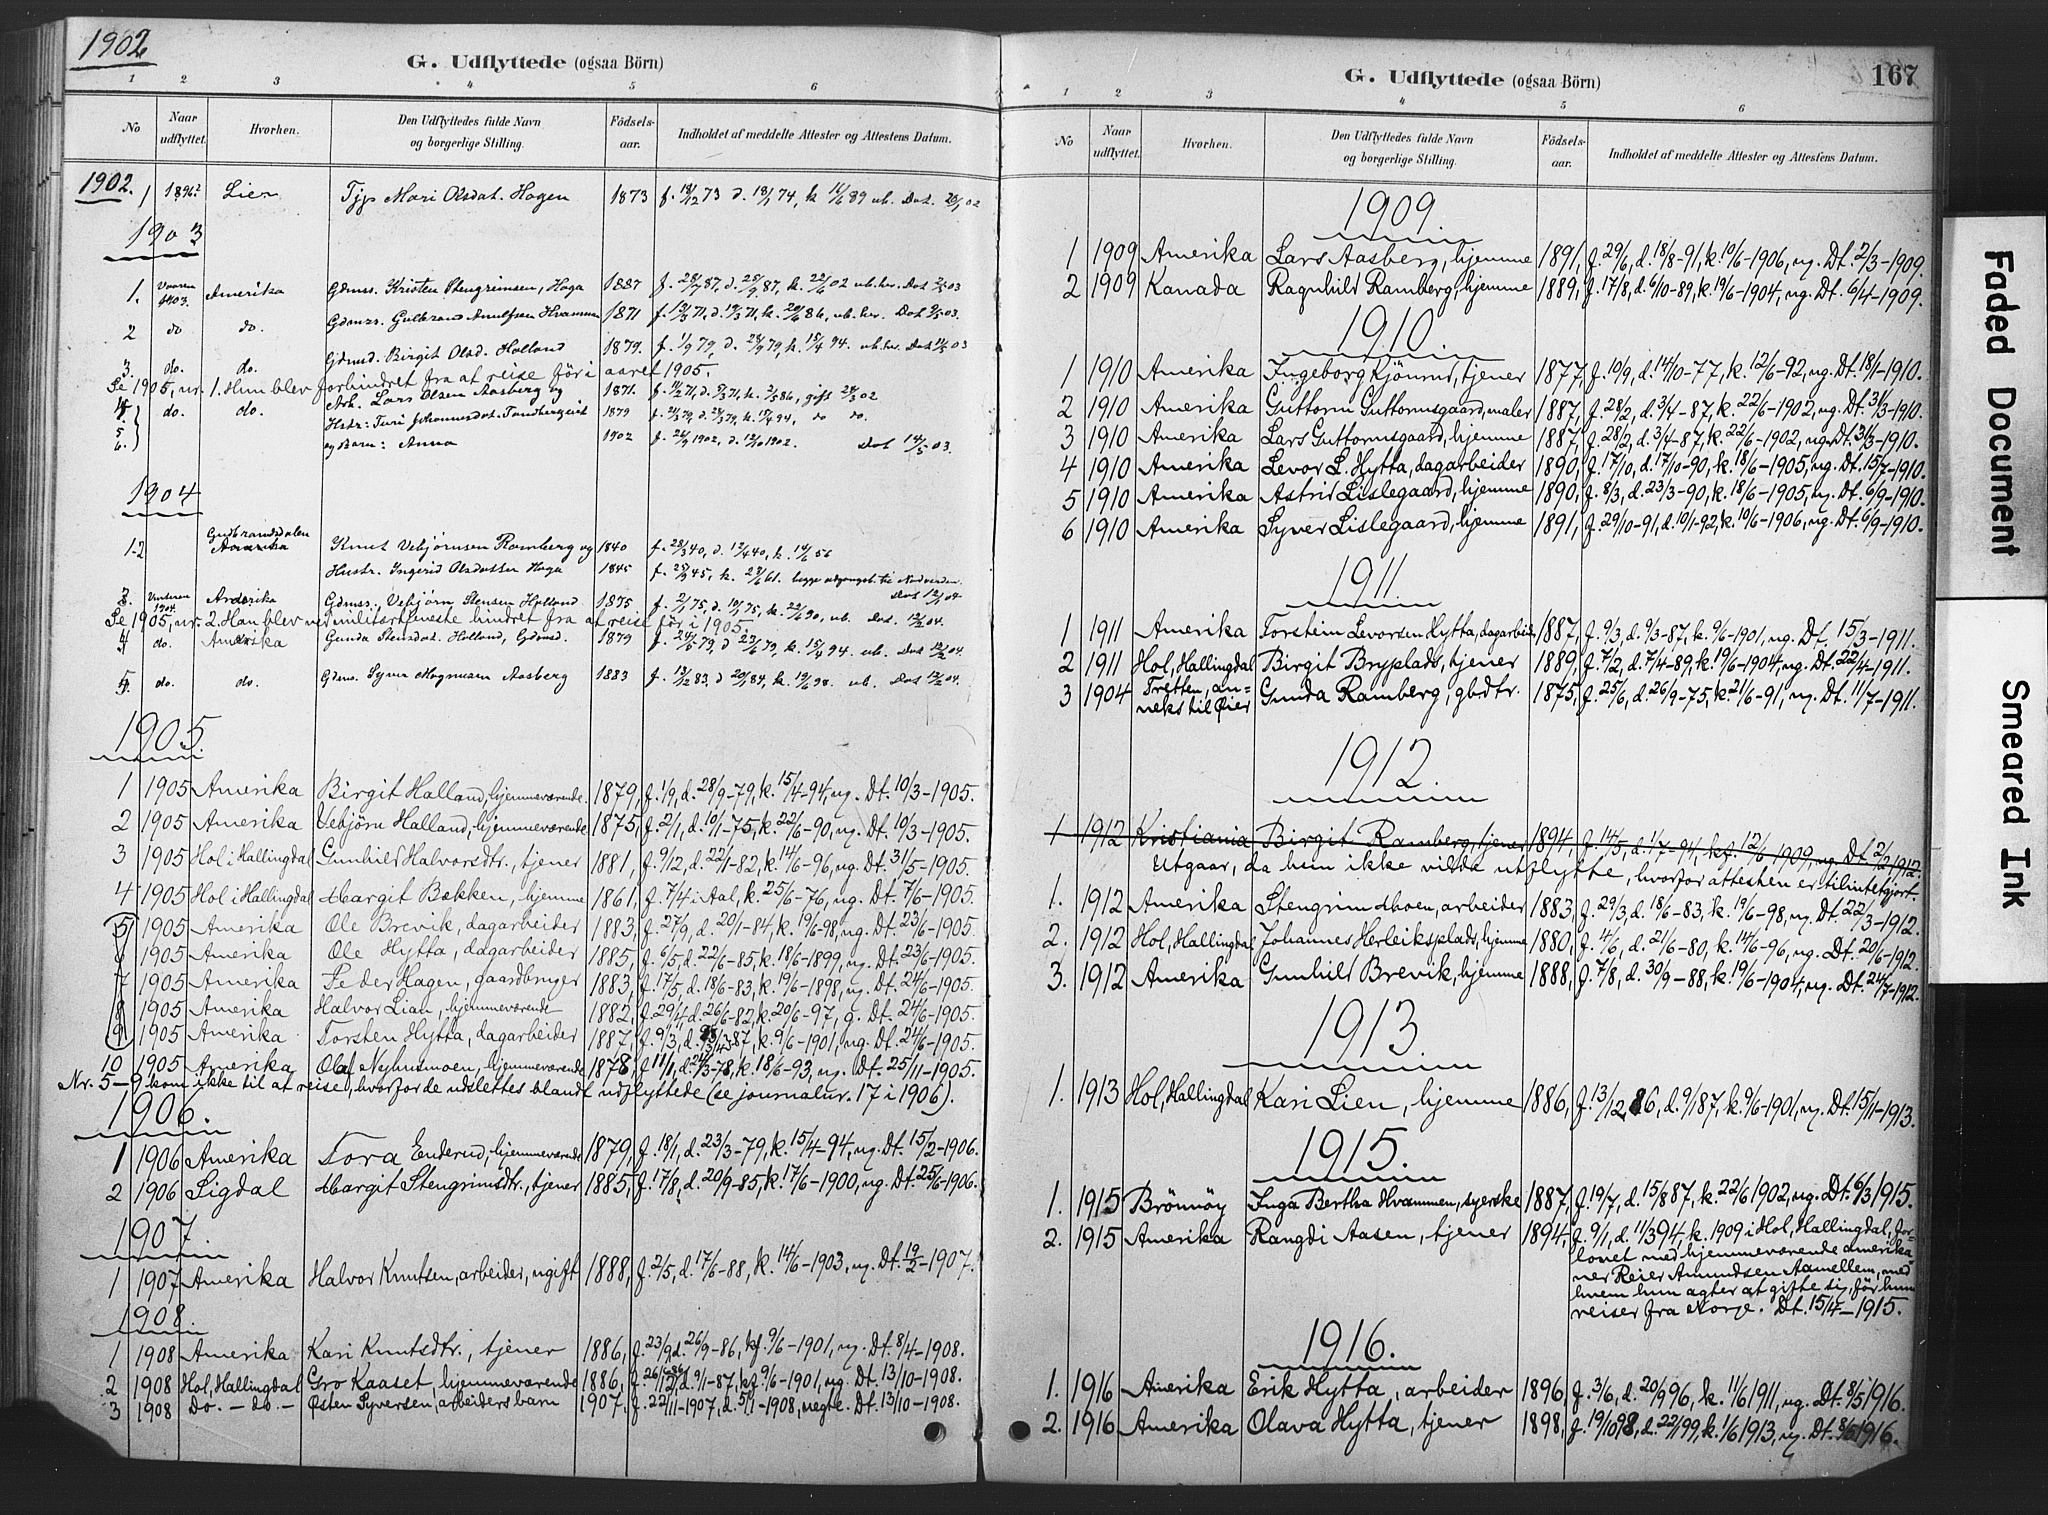 1902
G. Udflyttede (ogsaa Börn)
1 2 3 4 5 6
No Naar udflyttet. Hvorhen. Den Udflyttedes fulde Navn og borgerlige Stilling. Födsels-aar. Indholdet af meddelte Attester og Attestens Datum.
1902. 1 Lier Mari Olsdat. Hagen 1873 f. 18/12 73 d. 18/1 74, k.
1903
1. Vaaren 1903. Amerika Kristen Stengrimsen, Haga 1887
2 do do. Hvammen 1871
3. do. do. Birgit Olsd. Halland 1879.
Se 1905, nr. 1. Hun blev forhindret fra at reise för i aaret 1905.
4. do. do. Lars Olsen Aasberg og 1871.
5 Turi Johannesdat. 1879
6. og Barn: Anna 1902
1904
1.2 Gudbrandsdalen Knut Vebjörnsen Ramberg og 1840
Hustr. Ingerid Olsdatter Haga 1845
3. Vinteren 1904. Amerika Vebjörn Stensen Halland 1875
Se 1905, nr. 2. Han blev ved militærtjeneste hindret fra at reise för i 1905.
4 do. Amerika Gunda Stensdat. Halland, 1879
5 do. do. Aasberg 1883
1905.
1 1905 Amerika Birgit Halland, hjemmeværende. 1879, f. 1/9, d. 28/9-79, k. 15/4-94, ug. Dt. 10/3-1905.
2 1905 Amerika Vebjörn Halland, hjemmeværende 1875, f. 2/1, d. 10/1-75, k. 22/6-90, ug. Dt. 10/3-1905.
3 1905 Hol i Hallingdal Gunhild Halvorsdtr., tjener 1881, f. 9/12, d. 22/1-82, k. 14/6-96, ug. Dt. 31/5-1905.
4 1905 Hol i Hallingdal Margit Bækken, hjemme 1861, f. 7/4 i Aal, k. 25/6-76, ug. Dt. 7/6-1905.
5 1905 Amerika Ole Brevik, dagarbeider 1883, f. 27/9, d. 20/1-84, k. 19/6-98, ug. Dt. 23/6-1905.
6 1905 Amerika Ole Hytta, dagarbeider 1885, f. 6/5, d. 22/6-85, k. 18/6-1899, ug. Dt. 23/6-1905.
7 1905 Amerika Peder Hagen, gaardbruger 1883, f. 17/5 d. 18/6-83, k. 19/6-1898, ug. Dt. 24/6-1905.
8 1905 Amerika Halvor Lian, hjemmeværende 1882, f. 29/4, d. 26/6-82, k. 20/6-97, g. Dt. 24/6-1905.
9 1905 Amerika Torsten Hytta, dagarbeider 1887, f. 9/3, d. 87, k. 9/6-1901, ug. Dt. 24/6-1905.
10 1905 Amerika Olaf Nyhusmoen, hjemmeværende 1878, f. 11/1, d. 24/3-78, k. 18/6-93, ug. Dt. 25/11-1905.
Nr. 5-9 kom ikke til at reise, hvorfor de udslettes blandt udflyttede (se journalnr. 17 i 1906).
1906.
1 1906 Amerika Tora Enderud, hjemmeværende 1879, f. 18/1, d. 23/3-79, k. 15/4-94, ug. Dt. 15/2-1906.
2 1906 Sigdal Margit Stengrimsdtr., tjener 1885, f. 17/8, d. 20/9-85, k. 17/6-1900, ug. Dt. 25/6-1906.
1907.
1 1907 Amerika Halvor Knutsen, arbeider, ugift 1888, f. 2/5, d. 17/6-88, k. 14/6-1903, ug. Dt. 19/2-1907.
1908.
1 1908 Amerika Kari Knutsdtr., tjener 1886, f. 23/9, d. 26/9-86, kf. 9/6-1901, ug. Dt. 8/4-1908.
2 1908 Hol, Hallingdal Gro Kaaset, hjemmeværende 1886, f. 26/12, d. 9/1-87, kf. 9/6-1901, ug. Dt. 13/10-1908.
3 1908 Do. - do. - Østen Syversen, arbeiders barn 1907, f. 22/11-1907, d. 5/1-1908, negte. Dt. 13/10-1908.
G. Udflyttede (ogsaa Börn)
167
1 2 3 4 5 6
No Naar udflyttet. Hvorhen. Den Udflyttedes fulde Navn og borgerlige Stilling. Födsels-aar. Indholdet af meddelte Attester og Attestens Datum.
1909.
1 1909 Amerika Lars Aasberg, hjemme 1891, f. 29/6, d. 18/8-91, k. 10/6-1906, ug. Dt. 2/3-1909.
2 1909 Kanada Ragnhild Ramberg, hjemme 1889, f. 17/8, d. 6/10-89, k. 19/6-1904, ug. Dt. 6/4-1909.
1910.
1 1910 Amerika Ingeborg Kjönnrud, tjener 1877, f. 10/9, d. 14/10-77, k. 12/6-92, ug. Dt. 18/1-1910.
2 1910 Amerika Guttorm Guttormsgaard, maler 1887, f. 28/2, d. 3/4-87, k. 22/6-1902, ug. Dt. 31/3-1910.
3 1910 Amerika Lars Guttormsgaard, hjemme 1887, f. 28/2, d. 3/4-87, k. 22/6-1902, ug. Dt. 31/3-1910.
4 1910 Amerika Levor L. Hytta, dagarbeider 1890, f. 17/10, d. 17/10-90, k. 18/6-1905, ug. Dt. 15/7-1910.
5 1910 Amerika Astrid Lislegaard, hjemme 1890, f. 8/3, d. 23/3-90, k. 18/6-1905, ug. Dt. 6/9-1910.
6 1910 Amerika Syver Lislegaard, hjemme 1891, f. 29/10-91, d. 10/1-92, k. 10/6-1906, ug. Dt. 6/9-1910.
1911.
1 1911 Amerika Torstein Levorsen Hytta, dagarbeid. 1887, f. 9/3, d. 9/3-87, k. 9/6-1901, ug. Dt. 15/3-1911.
2 1911 Hol, Hallingdal Birgit Bryplads, tjener 1889, f. 7/2, d. 7/4-89, k. 19/6-1904, ug. Dt. 22/4-1911.
3 1904 Tretten, anneks til Øier Gunda Ramberg, gbdtr. 1875, f. 25/6, d. 26/9-75, k. 21/6-91, ug. Dt. 11/7-1911.
1912.
1 1912 Kristiania Birgit Ramberg, tjener 1894, f. 14/5, d. 1/7-94, kf. 12/6 1909, ug. Dt. 2/2 1912.
Utgaar, da hun ikke vilde utflytte, hvorfor attesten er tilintetgjort.
1. 1912 Amerika Stengrim dboen, arbeider 1883, f. 29/3, d. 18/6-83, k. 19/6-98, ug. Dt. 22/3-1912.
2. 1912 Hol, Hallingdal Johannes Herleiksplads, hjemme 1880, f. 4/6, d. 21/6-80, k. 14/6-96, ug. Dt. 20/6-1912.
3. 1912 Amerika Gunhild Brevik, hjemme 1888, f. 7/8, d. 30/9-88, k. 19/6-1904, ug. Dt. 24/7-1912.
1913.
1. 1913 Hol, Hallingdal Kari Lien, hjemme 1886, f. 13/12 86, d. 9/1 87, k. 9/6-1901, ug. Dt. 15/11-1913.
1915.
1. 1915 Brönnöy Inga Bertha Hvammen, syerske 1887, f. 19/7, d. 15/8 87, k. 22/6 1902, ug. Dt. 6/3 1915.
2. 1915 Amerika Rangdi Aasen, tjener 1894, f. 9/1, d. 11/3 94, k. 1909 i Hol, Hallingdal, for-
lovet med hjemmeværende amerika-
ner Reier Amundsen Aamellem, med
hvem hun agter at gifte sig, för hun
reiser fra Norge. Dt. 15/4-1915.
1916.
1. 1916 Amerika Erik Hytta, arbeider 1896, f. 3/6, d. 20/9 96, k. 11/6 1911, ug. Dt. 8/5 1916.
2. 1916 Amerika Olava Hytta, tjener 1898, f. 19/10 98, d. 22/1 99, k. 1/6 1913, ug. Dt. 8/5 1916.
Faded Document
Smeared Ink